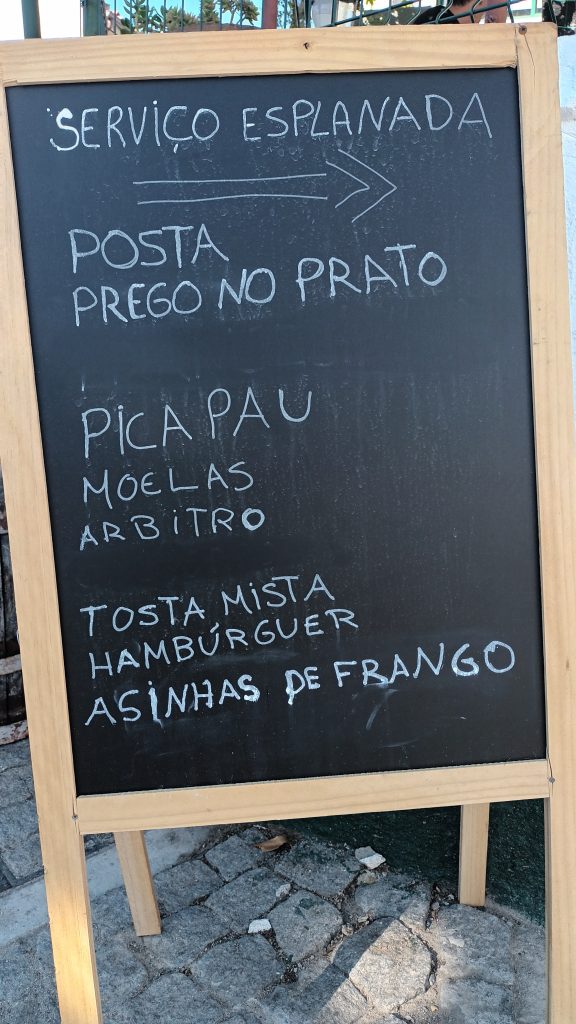 SERVIÇO ESPLANADA
POSTA
PREGO NO PRATO
PICA PAU
MOELAS
ARBITRO
TOSTA MISTA
HAMBÚRGUER
ASINHAS DE FRANGO